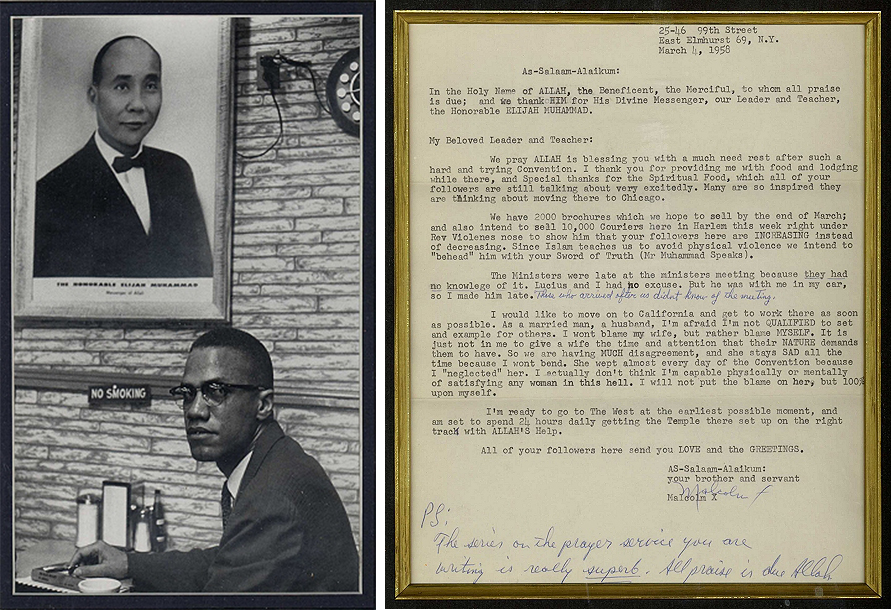 THE HONORABLE ELIJAH MUHAMMAD
Messenger of Allah
NO SMOKING
25-46 99th Street
East Elmhurst 69, N.Y.
March 4, 1958
As-Salaam-Alaikum:
In the Holy Name of ALLAH, the Beneficent, the Merciful, to whom all praise
is due; and we thank HIM for His Divine Messenger, our Leader and Teacher,
the Honorable ELIJAH MUHAMMAD.
My Beloved Leader and Teacher:
We pray ALLAH is blessing you with a much need rest after such a
hard and trying Convention. I thank you for providing me with food and lodging
while there, and Special thanks for the Spiritual Food, which all of your
followers are still talking about very excitedly. Many are so inspired they
are thinking about moving there to Chicago.
We have 2000 brochures which we hope to sell by the end of March;
and also intend to sell 10,000 Couriers here in Harlem this week right under
Rev Violenes nose to show him that your followers here are INCREASING instead
of decreasing. Since Islam teaches us to avoid physical violence we intend to
"behead" him with your Sword of Truth (Mr Muhammad Speaks).
The Ministers were late at the ministers meeting because they had
no knowlege of it. Lucius and I had no excuse. But he was with me in my car,
so I made him late. Those who arrived after us didnt know of the meeting.
I would like to move on to California and get to work there as soon
as possible. As a married man, a husband, I'm afraid I'm not QUALIFIED to set
and example for others. I wont blame my wife, but rather blame MYSELF. It is
just not in me to give a wife the time and attention that their NATURE demands
them to have. So we are having MUCH disagreement, and she stays SAD all the
time because I wont bend. She wept almost every day of the Convention because
I "neglected" her. I actually don't think I'm capable physically or mentally
of satisfying any woman in this hell. I will not put the blame on her, but 100%
upon myself.
I'm ready to go to The West at the earliest possible moment, and
am set to spend 24 hours daily getting the Temple there set up on the right
track with ALLAH'S Help.
All of your followers here send you LOVE and the GREETINGS.
AS-Salaam-Alaikum:
your brother and servant
Malcolm X
Malcolm X
PS:
The series on the prayer service you are
writing is really superb. All praise is due Allah